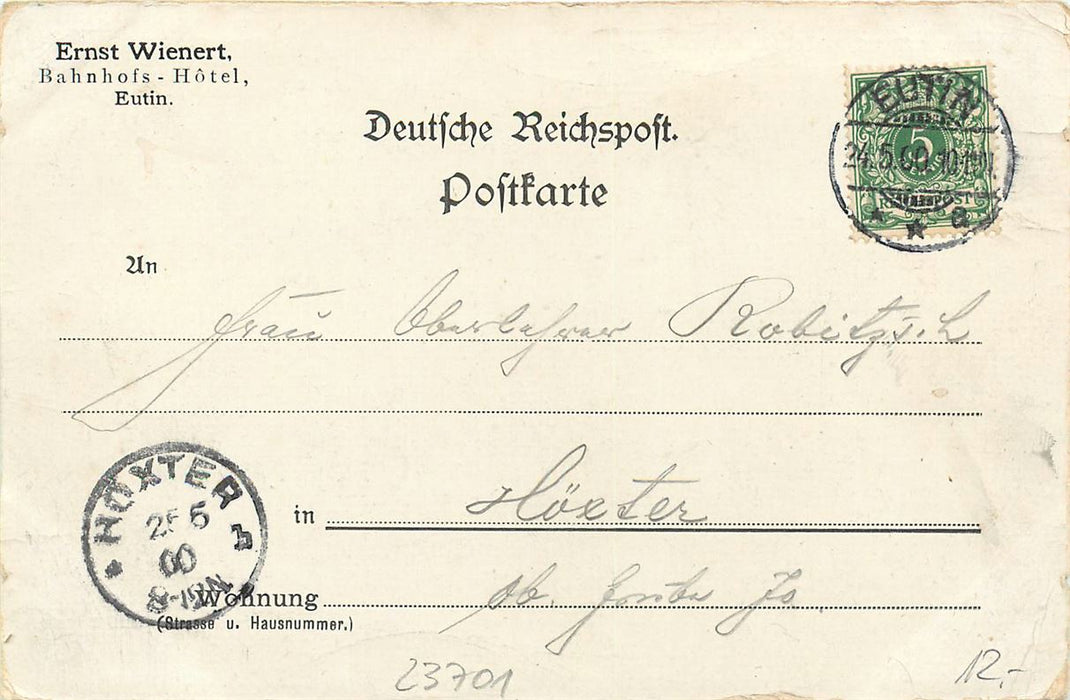 Ernst Wienert,
Bahnhofs-Hôtel,
Eutin.
Deutsche Reichspost.
Postkarte
EUTIN
24.5.00
5
REICHSPOST
An
Frau Oberlehrer Robitzsch
HÖXTER
25 5
00
in Höxter
Wohnung
(Strasse u. Hausnummer.)
23701
12.-